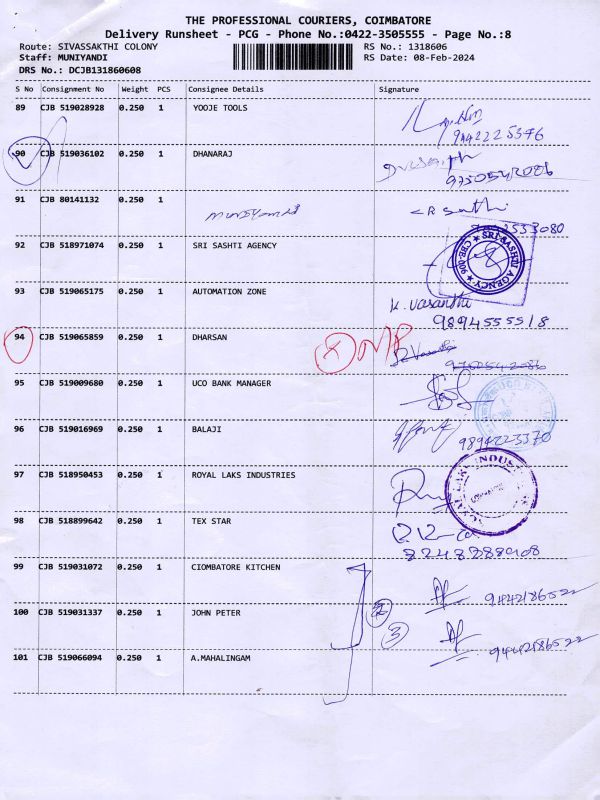 THE PROFESSIONAL COURIERS, COIMBATORE
Delivery Runsheet - PCG - Phone No.:0422-3505555 - Page No.:8
Route: SIVASSAKTHI COLONY RS No.: 1318606
Staff: MUNIYANDI RS Date: 08-Feb-2024
DRS No.: DCJB131860608
S No Consignment No Weight PCS Consignee Details Signature
89 CJB 519028928 0.250 1 YOOJE TOOLS
9442225376
90 CJB 519036102 0.250 1 DHANARAJ
9750542086
91 CJB 80141132 0.250 1
92 CJB 518971074 0.250 1 SRI SASHTI AGENCY
SRI SASHTI AGENCY
93 CJB 519065175 0.250 1 AUTOMATION ZONE K. Vasanthi
9894555518
94 CJB 519065859 0.250 1 DHARSAN
9750542086
95 CJB 519009680 0.250 1 UCO BANK MANAGER
96 CJB 519016969 0.250 1 BALAJI
9894223370
97 CJB 518950453 0.250 1 ROYAL LAKS INDUSTRIES
98 CJB 518899642 0.250 1 TEX STAR
99 CJB 519031072 0.250 1 CIOMBATORE KITCHEN
9442186522
100 CJB 519031337 0.250 1 JOHN PETER
3 9442186522
101 CJB 519066094 0.250 1 A.MAHALINGAM